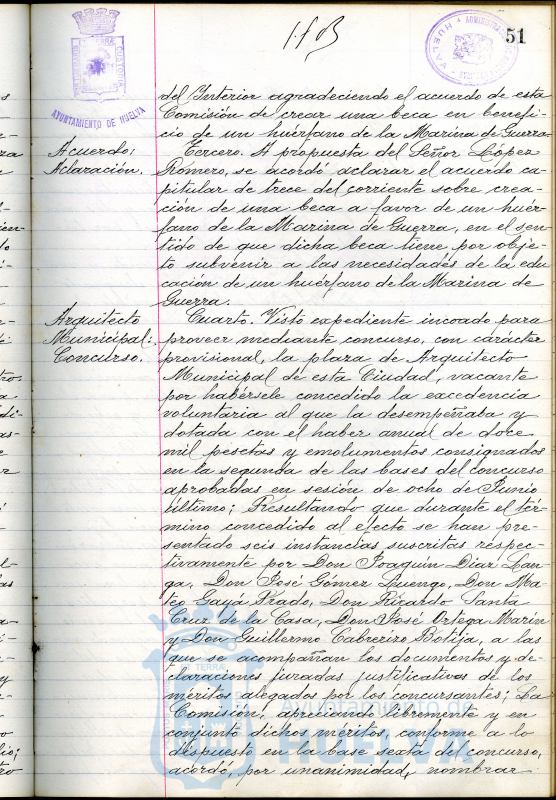 51
AYUNTAMIENTO DE HUELVA
del Interior agradeciendo el acuerdo de esta
Comisión de crear una beca en benefi-
cio de un huérfano de la Marina de Guerra.
Acuerdo:
Aclaración.
Tercero. A propuesta del Señor López
Romero, se acordó aclarar el acuerdo ca-
pitular de trece del corriente sobre crea-
ción de una beca a favor de un huér-
fano de la Marina de Guerra, en el sen-
tido de que dicha beca tiene por obje-
to subvenir a las necesidades de la edu
cación de un huérfano de la Marina de
Guerra.
Arquitecto
Municipal:
Concurso.
Cuarto. Visto expediente incoado para
proveer mediante concurso, con carácter
provisional, la plaza de Arquitecto
Municipal de esta Ciudad, vacante
por habérsele concedido la excedencia
voluntaria al que la desempeñaba y
dotada con el haber anual de doce
mil pesetas y emolumentos consignados
en la segunda de las bases del concurso
aprobadas en sesión de ocho de Junio
último; Resultando que durante el tér-
mino concedido al efecto se han pre-
sentado seis instancias suscritas respec-
tivamente por Don Joaquin Diaz Lan-
ga, Don José Gómez Luengo, Don Ma-
teo Gayá Prado, Don Ricardo Santa
Cruz de la Casa, Don José Ortega Marín
y Don Guillermo Cabrerizo Botija, a las
que se acompañan los documentos y de-
claraciones juradas justificativas de los
méritos alegados por los concursantes; La
Comisión, apreciando libremente y en
conjunto dichos méritos, conforme a lo
dispuesto en la base sexta del concurso,
acordó, por unanimidad, nombrar
Ayuntamiento de
HUELVA